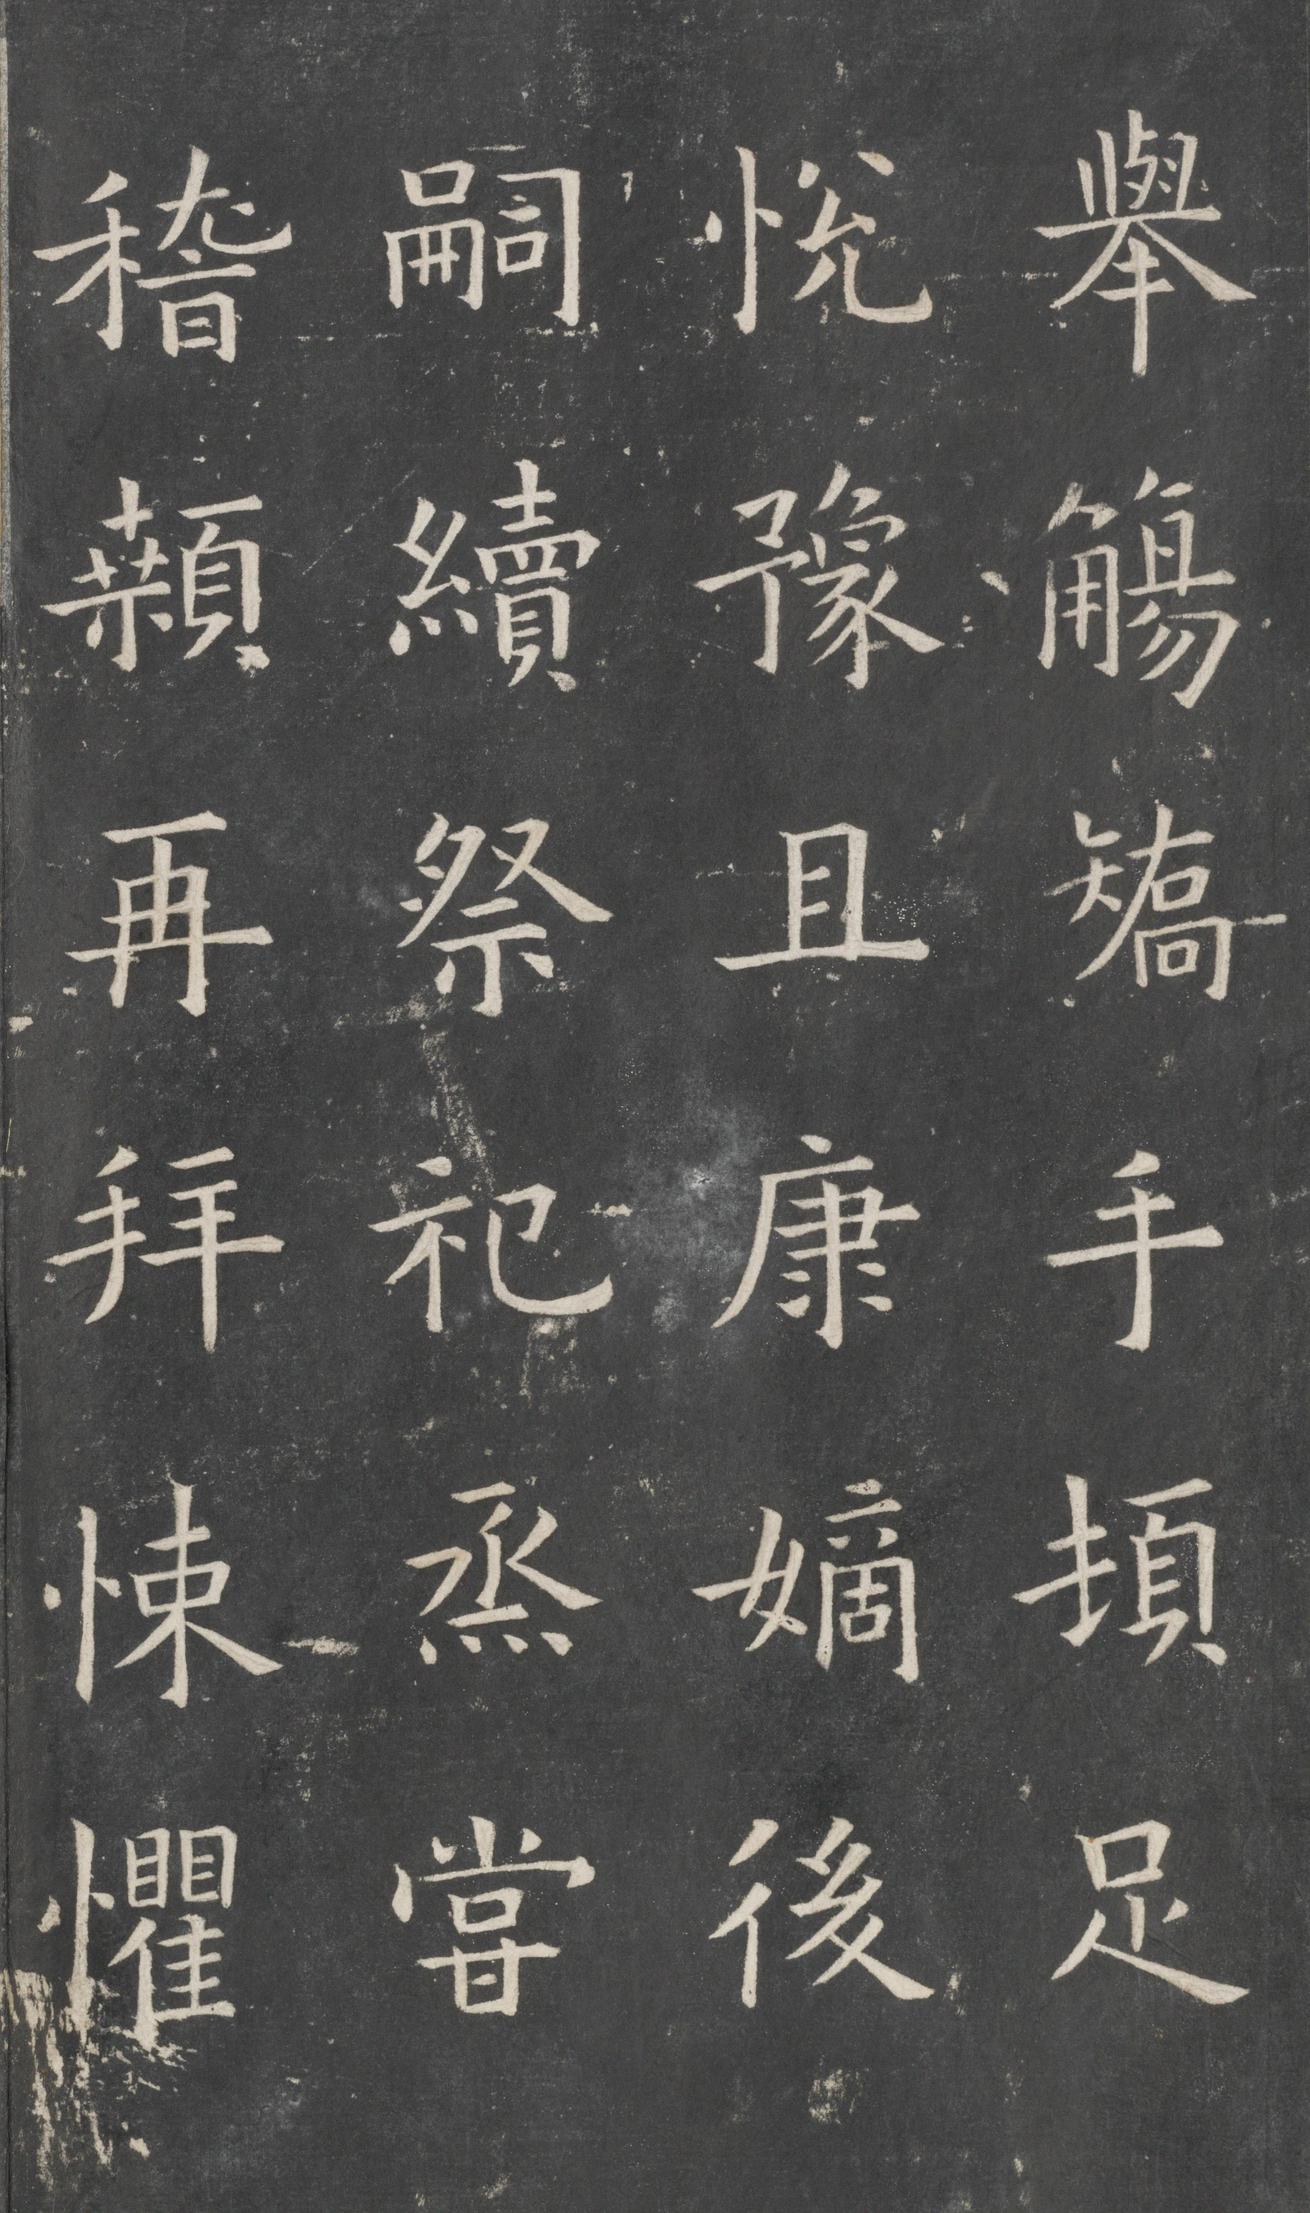 舉觴矯手頓足
悅豫且康嫡後
嗣續祭祀烝嘗
稽顙再拜悚懼